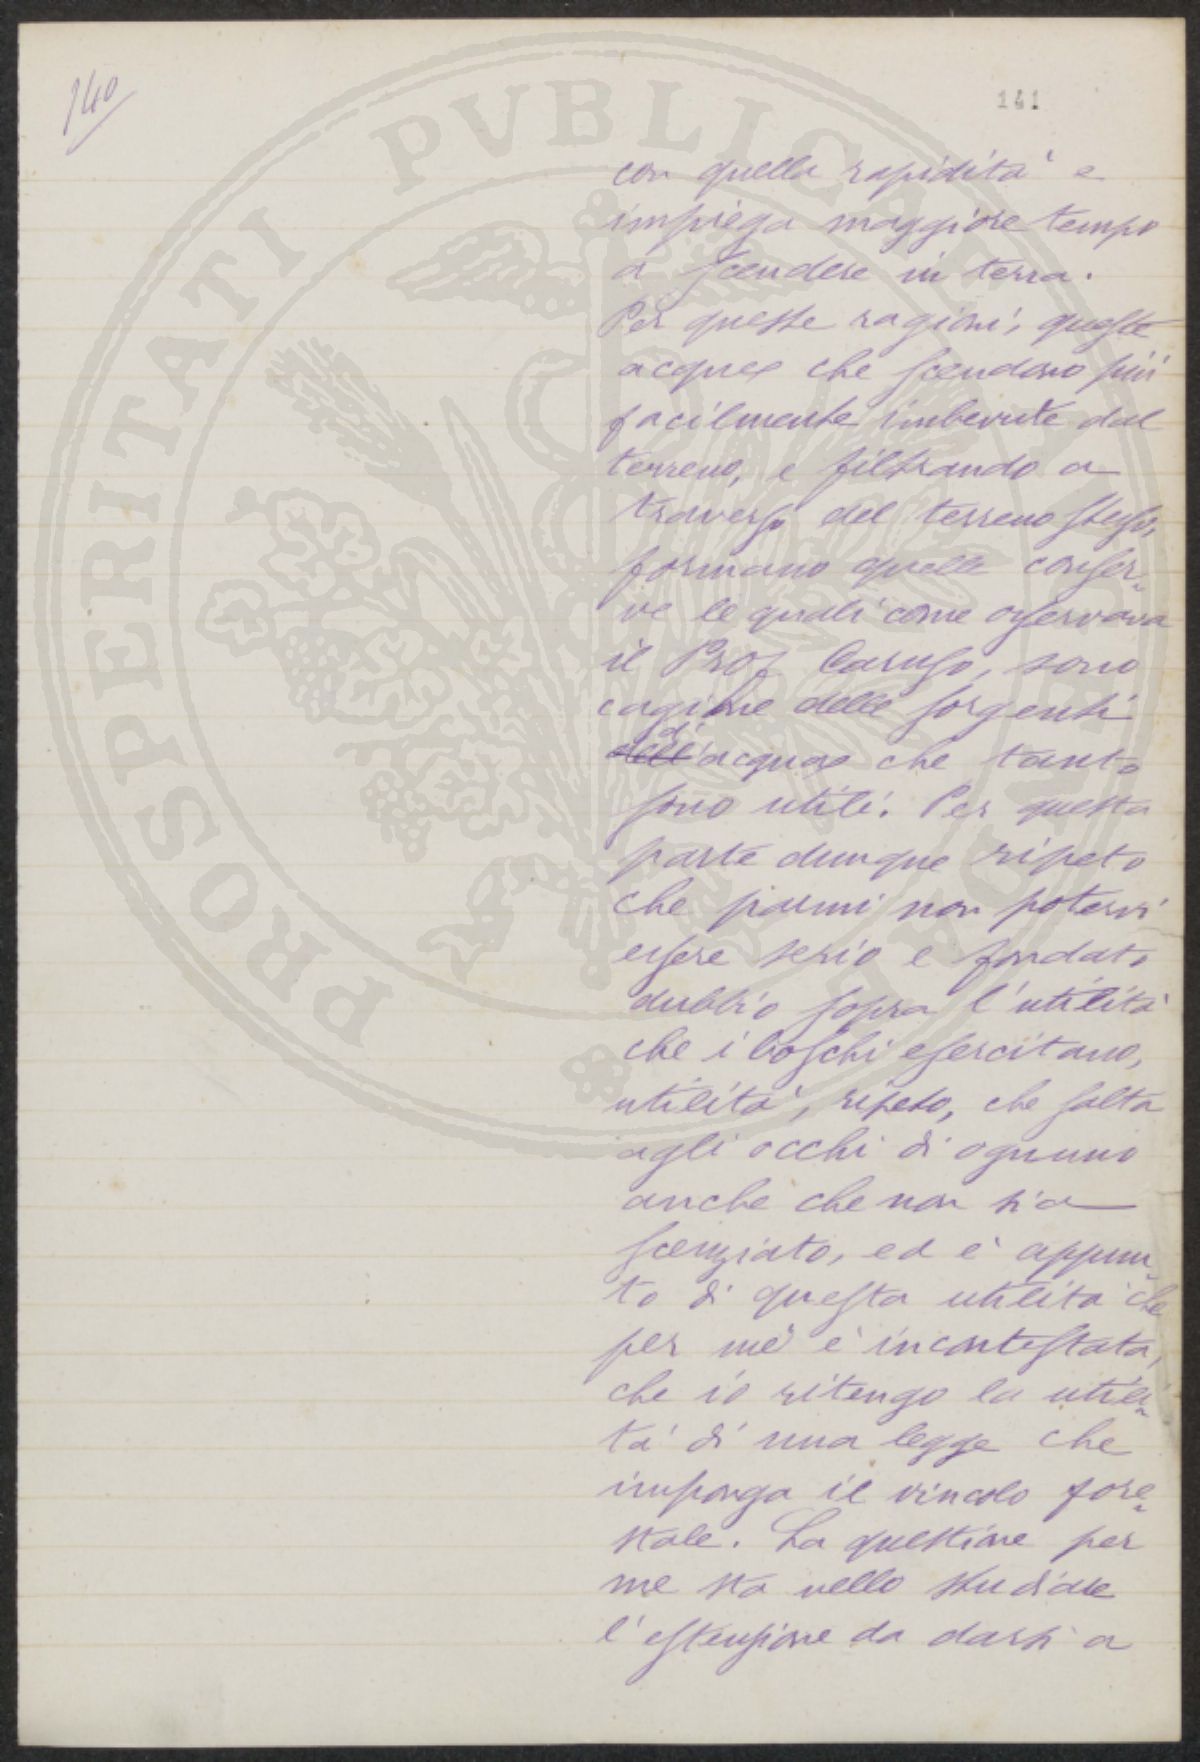 140
141
con quella rapidità e
impiega maggiore tempo
a scendere in terra.
Per queste ragioni, queste
acque che scendono più
facilmente imbevute dal
terreno, e filtrando a
traverso del terreno stesso,
formano quelle conser-
ve le quali come osservava
il Prof Caruso, sono
cagione delle sorgenti
dell' d'acqua che tanto
sono utili. Per questa
parte dunque ripeto
che parmi non potervi
essere serio e fondato
dubbio sopra l'utilità
che i boschi esercitano,
utilità, ripeto, che salta
agli occhi di ognuno
anche che non sia
scenziato, ed è appun-
to di questa utilità che
per me è incontestata,
che io ritengo la utili-
tà di una legge che
imponga il vincolo fore-
stale. La questione per
me sta nello studiare
l'estensione da darsi a
PROSPERITATI PVBLICAE